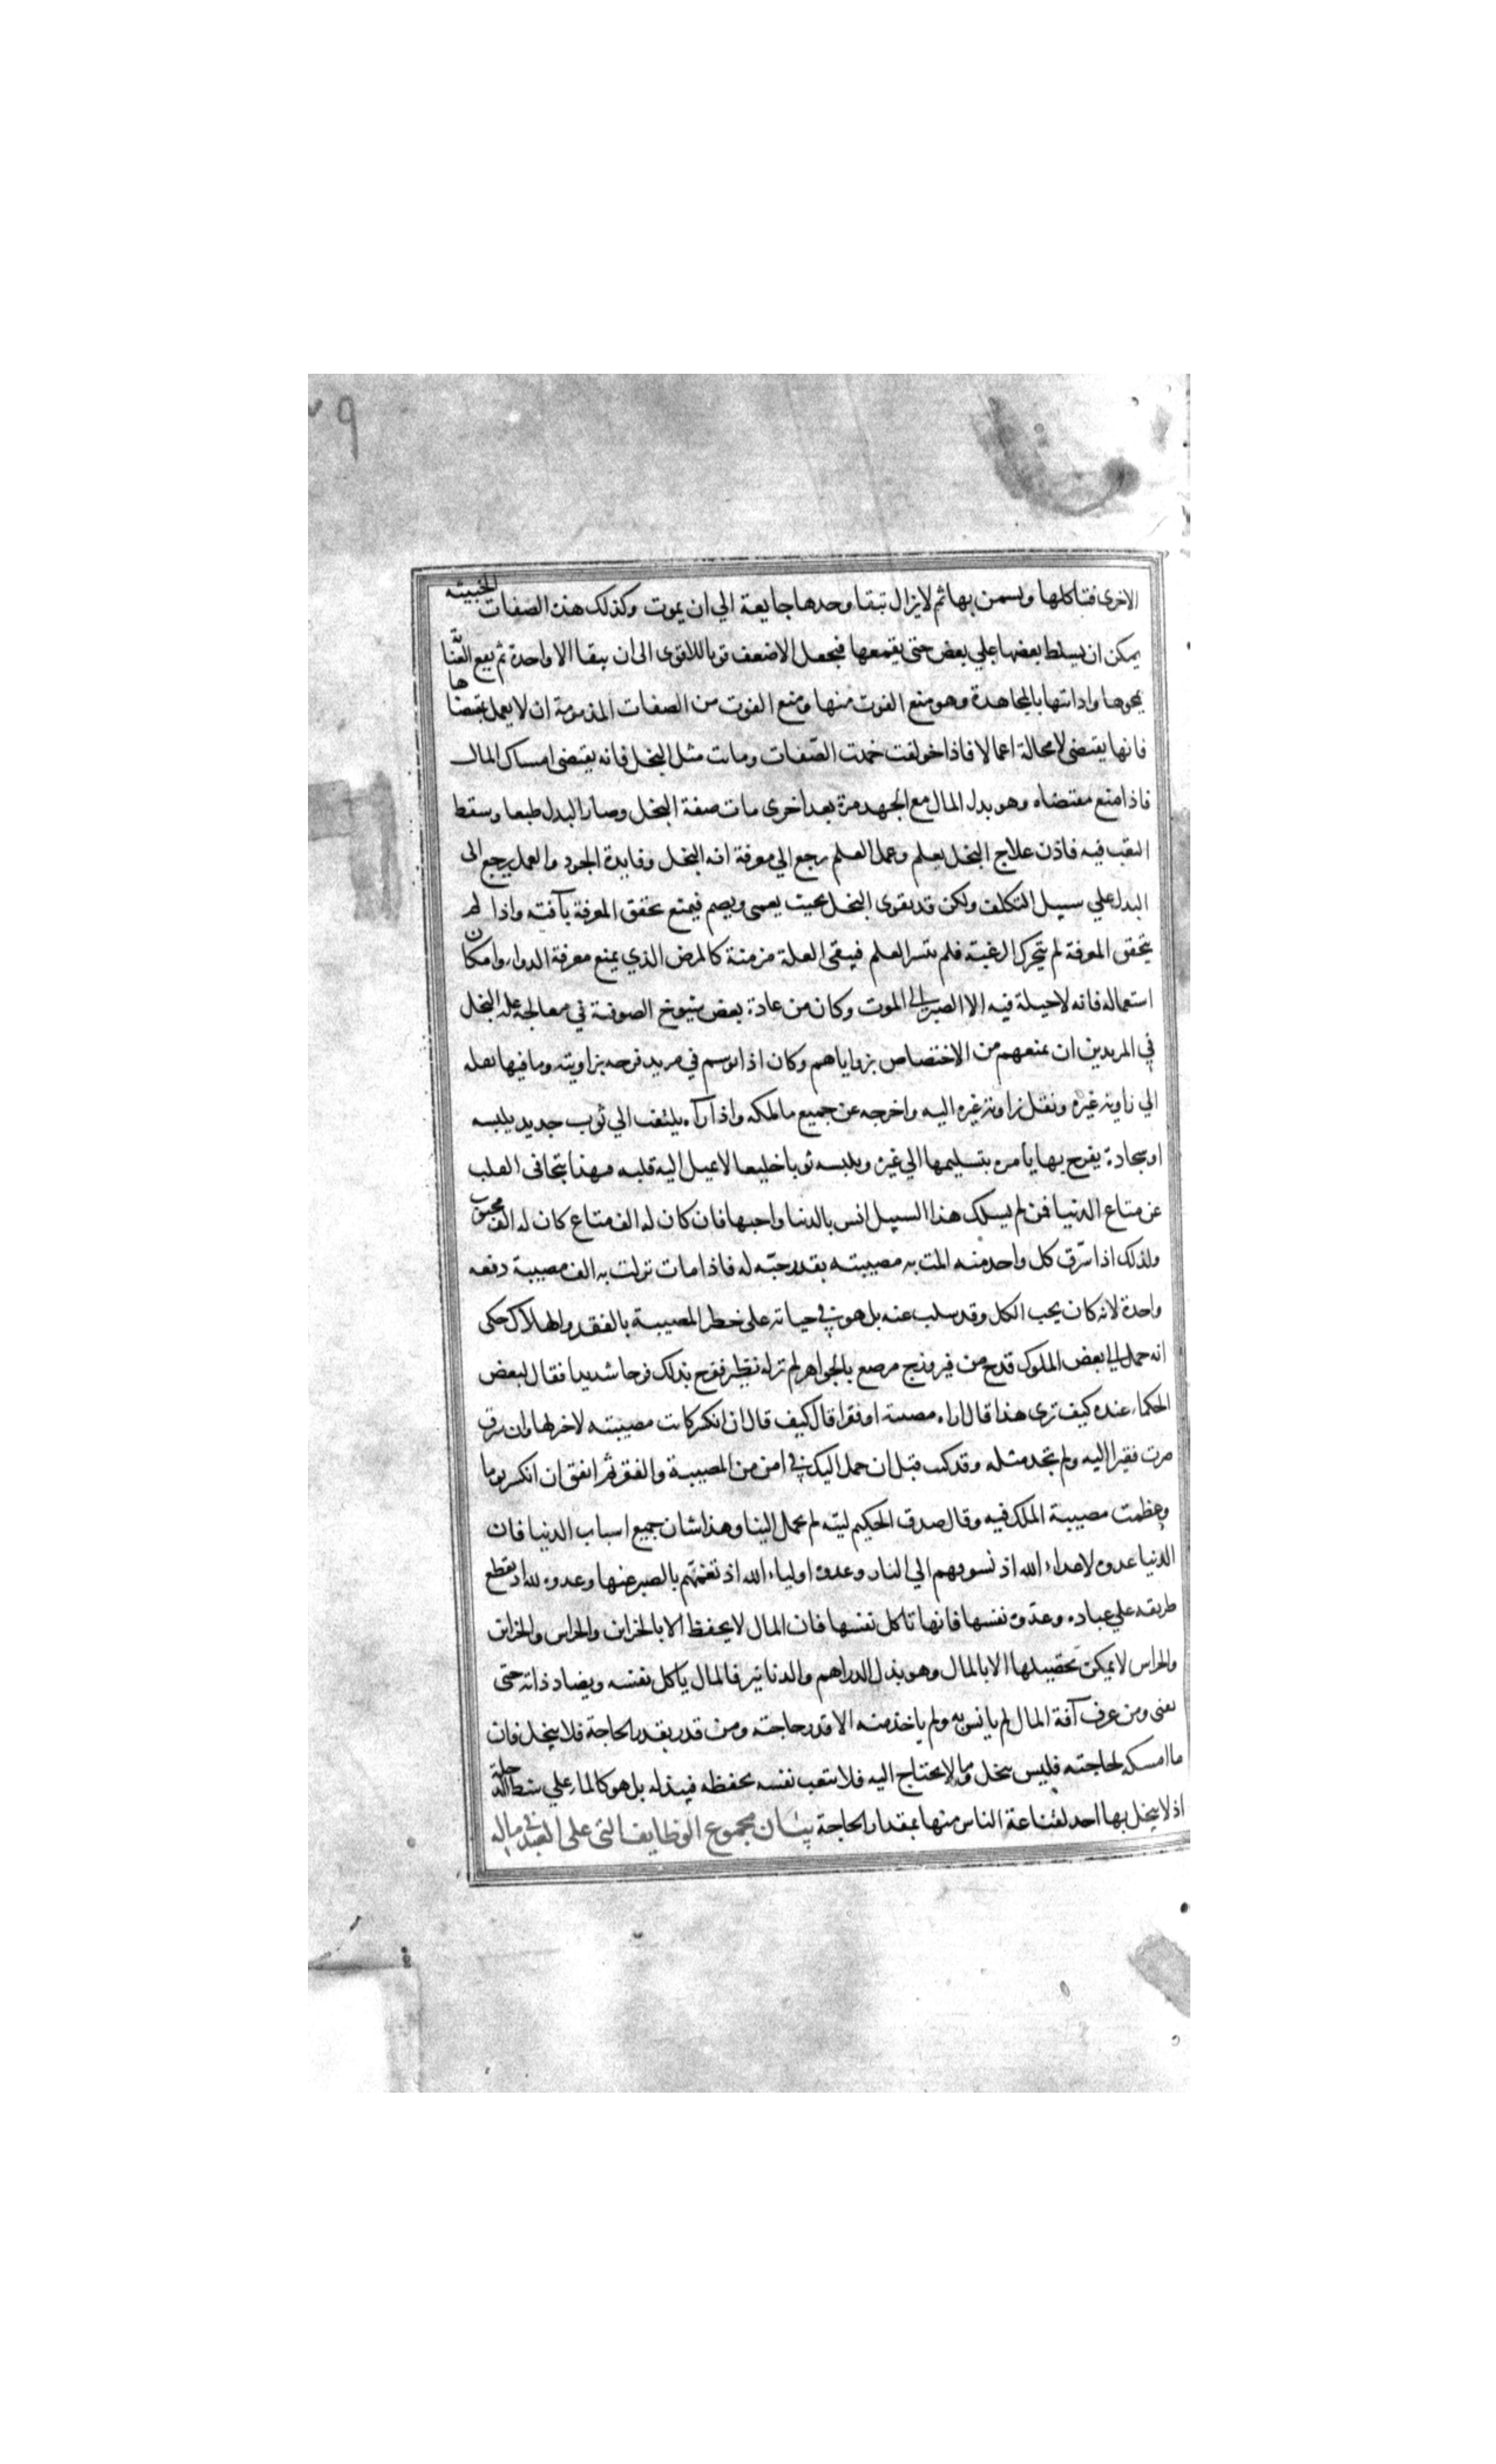 الاخرى فتاكلها وتسمن بها ثم لا يزال تبقا وحدها جايعة الي ان يموت وكذلك هذه الصفات الخبيثه
يمكن ان يسلط بعضها علي بعض حتى يقمعها فيجعل الاضعف قوتا للاقوى الى ان يبقا الا واحدة ثم يقع العنا
بمحوها واذابتها بالمجاهدة وهو منع القوت منها ومنع القوت من الصفات المذمومة ان لا يعمل بمقتضاها
فانها يقتضى لا محالة اعمالا فاذا خولفت خمدت الصفات وماتت مثل البخل فانه يقتضى امساك المال
فاذا منع مقتضاه وهو بدل المال مع الجهد مرة بعد اخرى مات صفة البخل وصار البدل طبعا وسقط
التعب فيه فاذن علاج البخل بعلم وعمل العلم يرجع الي معرفة افه البخل وفايدة الجود والعمل يرجع الى
البدل علي سبيل التكلف ولكن قد يقوى البخل بحيث يعمى ويصم فيمنع تحقق المعرفة بآفته واذا لم
يتحقق المعرفة لم يتحرك الرغبة فلم يتسر العلم فيبقى العلة مزمنة كالمرض الذي يمنع معرفة الدواء وامكان
استعماله فانه لا حيلة فيه الا الصبر الى الموت وكان من عادة بعض شيوخ الصوفية في معالجة علة البخل
في المريدين ان يمنعهم من الاختصاص بزواياهم وكان اذا توسم في مريد فرحه بزاويته وما فيها نقله
الي زاوية غيره ونقل زاوية غيره اليه واخرجه عن جميع ما ملكه واذا رآه يلتفت الي ثوب جديد يلبسه
او سجادة يفرح بها يأمره بتسليمها الي غيره ويلبسه ثوبا خليعا لا يميل اليه قلبه فبهذا يتجافى القلب
عن متاع الدنيا فمن لم يسلك هذا السبيل انس بالدنيا واحبها فان كان له الف متاع كان له الف محبوب
ولذلك اذا سرق كل واحد منه المت به مصيبته بقدر حبه له فاذا مات نزلت به الف مصيبة دفعه
واحدة لانه كان يحب الكل وقد سلب عنه بل هو في حياته على خطر المصيبة بالفقد والهلاك حكى
انه حمل الى بعض الملوك قدح من فيروزج مرصع بالجواهر لم ير له نظير ففرح بذلك فرحا شديدا فقال لبعض
الحكماء عنده كيف ترى هذا قال اراه مصيبة او فقرا قال كيف قال ان انكسر كانت مصيبته لا خير لها وان سرق
صرت فقيرا اليه ولم تجد مثله وقد كنت قبل ان حمل اليك في امن من المصيبة والفقر ثم اتفق ان انكسر يوما
وعظمت مصيبة الملك فيه وقال صدق الحكيم ليته لم يحمل الينا وهذا شان جميع اسباب الدنيا فان
الدنيا عدوه لاعداء الله اذ تسوقهم الي النار وعدوه اولياء الله اذ تغمهم بالصبر عنها وعدوه لله اذ تقطع
طريقه علي عباده وعدوه نفسها فانها تاكل نفسها فان المال لا يحفظ الا بالخزاين والحراس والخزاين
والحراس لا يمكن تحصيلها الا بالمال وهو بذل الدراهم والدنانير فالمال ياكل نفسه ويضاد ذاته حتى
يفنى ومن عرف آفة المال لم يانس به ولم ياخذ منه الا قدر حاجته ومن قدر بقدر الحاجة فلا يبخل فان
ما امسكه لحاجته فليس ببخل وما لا يحتاج اليه فلا يتعب نفسه بحفظه فيبذله بل هو كالماء علي شط الدجلة
اذ لا يبخل بها احد لقناعة الناس منها بمقدار الحاجة بيان مجموع الوظايف التى على العبد في ماله